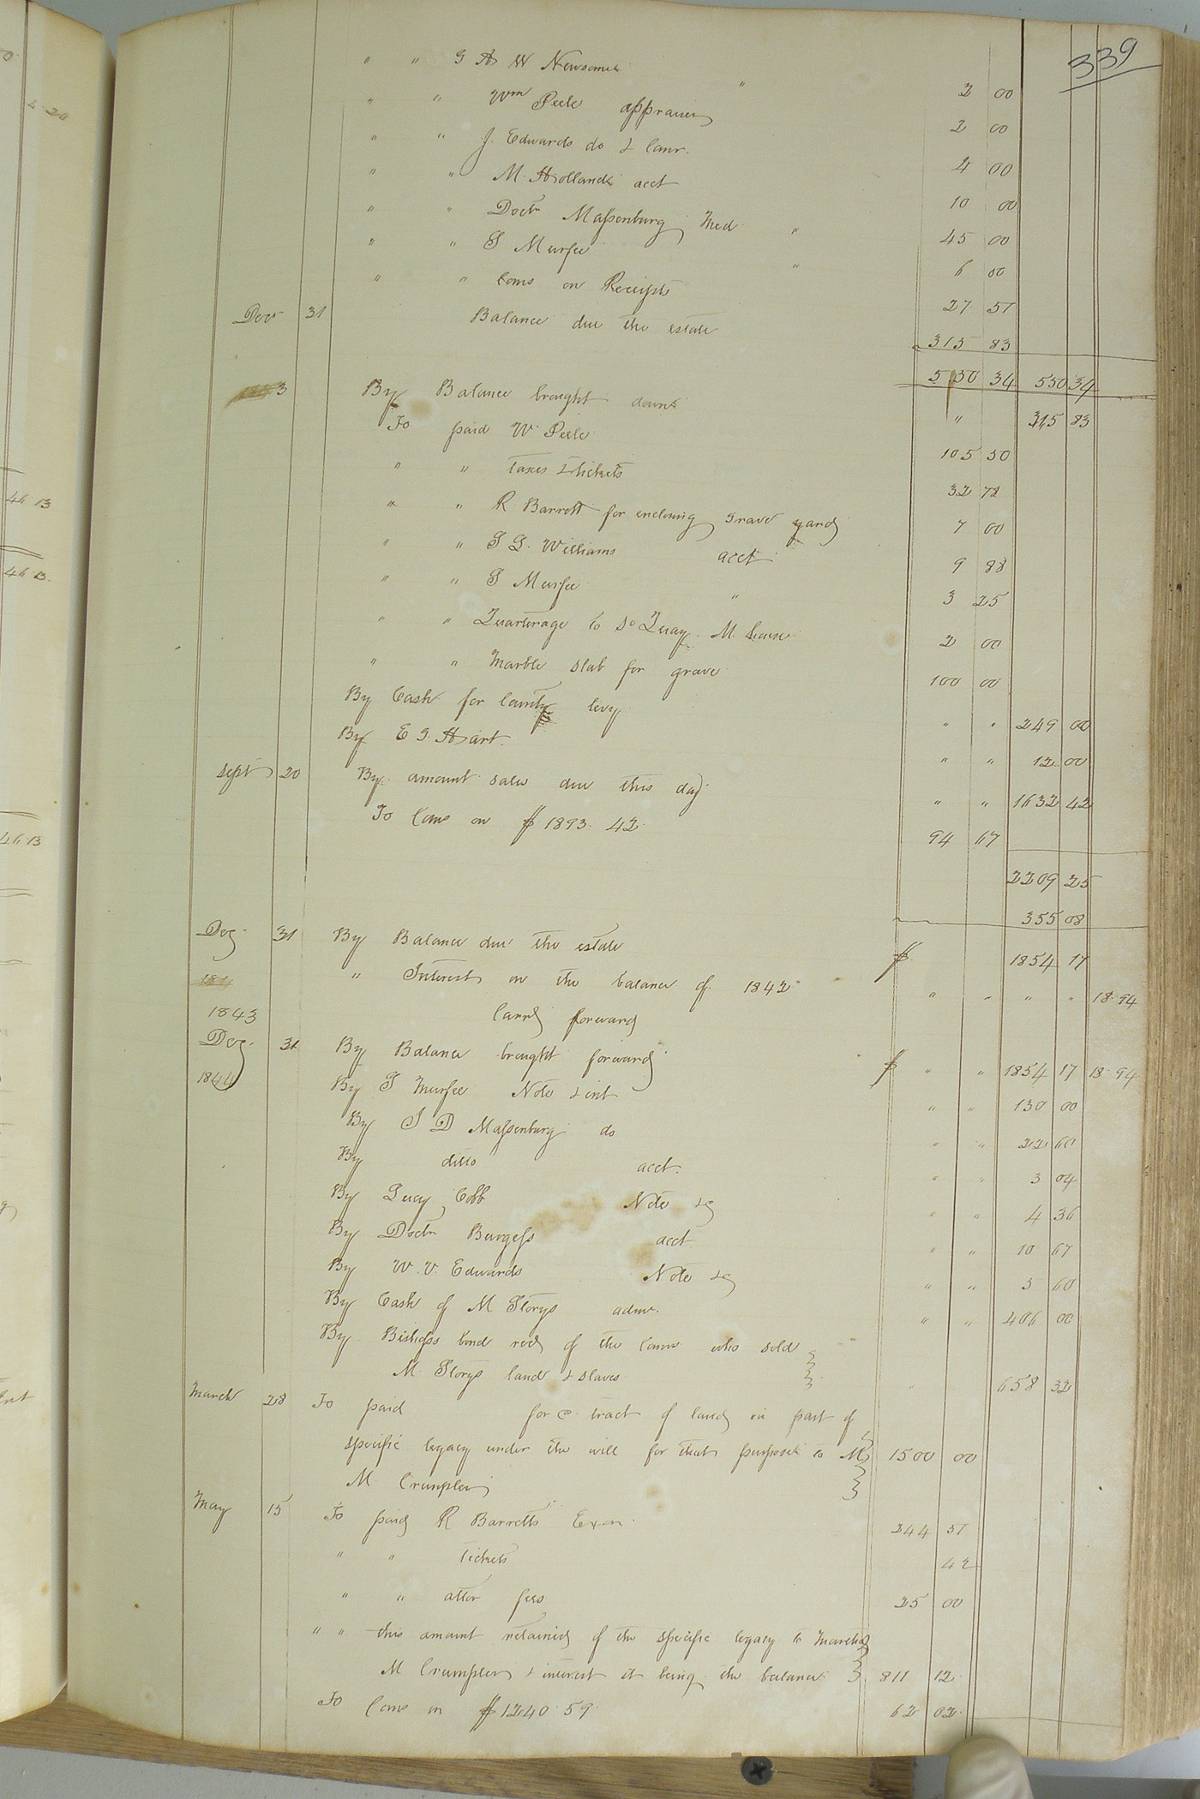 339
" " G A W Newsome " 2 00
" " Wm Peele appraiser 2 00
" " J. Edwards do & comr. 4 00
" " M. Hollands acct 10 00
" " Doctr Massenburg Med " 45 00
" " S Murfee " 6 00
" " Coms on Receipts 27 51
Decr 31 Balance due the estate 315 83
530 34 530 34
3 By Balance brought down " 315 83
To paid W. Peele 105 50
" " Taxes & tickets 32 72
" " R Barrett for enclosing grave yard 7 00
" " S. Williams acct 9 88
" " S Murfee " 3 25
" " Quarterage to So Quay M. house 2 00
" " Marble slab for grave 100 00
By Cash for County levy " " 249 00
By E S. Hart " " 12 00
Sept 20 By amount sales due this day " " 1632 42
To Coms on $1893. 42 94 67
2209 25
355 08
Dec. 31 By Balance due the estate $ 1854 17
" Interest on the balance of 1842 " " " " 18.94
1843 Carrd forward
Dec. 31 By Balance brought forward $ " " 1854 17 18.94
1844 By S Murfee Note & int " " 130 00
By S D Massenburg do " " 22 60
By ditto acct. " " 3 04
By Lucy Cobb Note &c " " 4 36
By Doctr Burgess acct " " 10 67
By W. V. Edwards Note &c " " 3 60
By Cash of M Storys admr. " " 406 00
By Bishops bond recd of the comrs who sold
M. Storys land & slaves " 658 32
March 28 To paid for a tract of land in part of
specific legacy under the will for that purpose to M 1500 00
M. Crumpler
May 15 To paid R Barretts Exor. 244 51
" " Tickets 42
" " attor fees 25 00
" " this amount retained of the specific legacy to Martha
M Crumpler & interest it being the balance 811 12
To Coms on $1240. 59 62 02